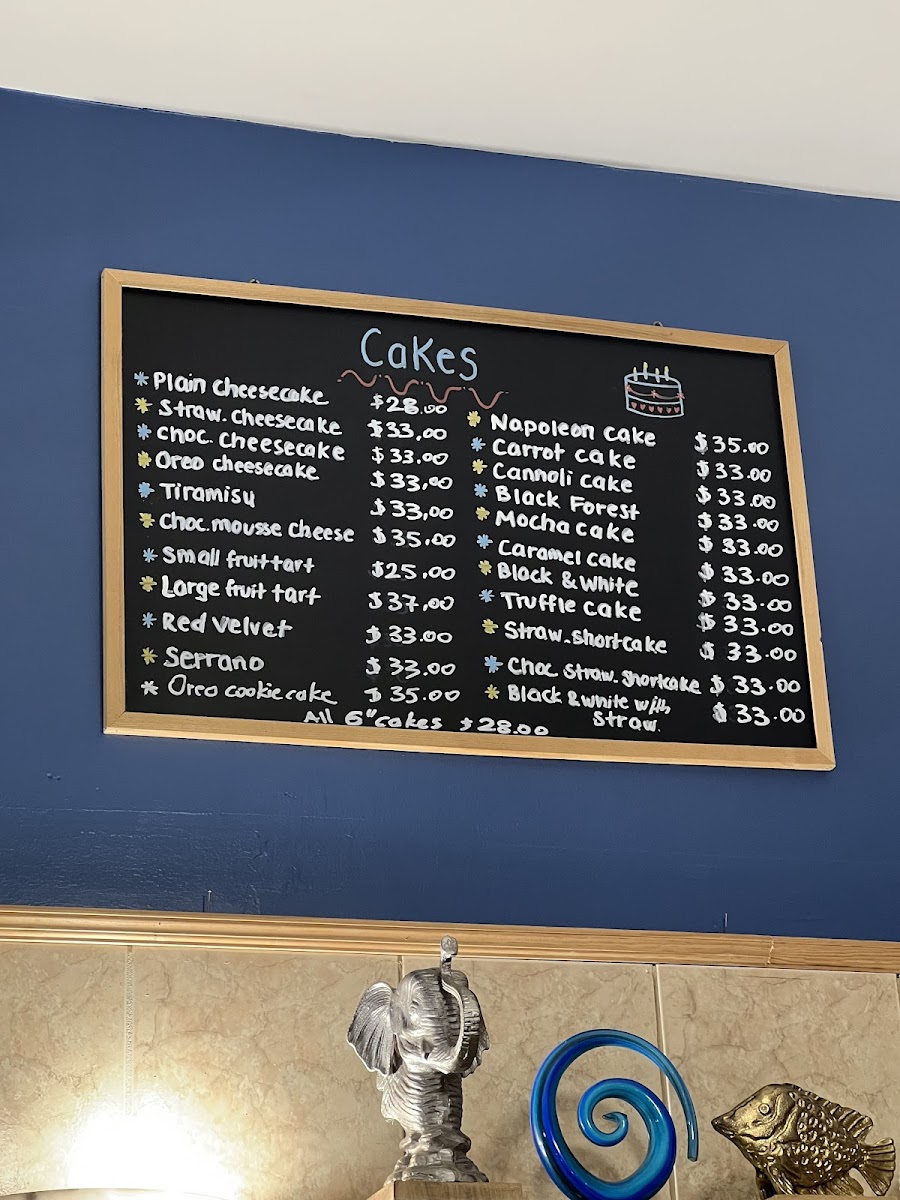 Cakes
* Plain Cheesecake $28.00
* Straw. Cheesecake $33,00
* Choc. Cheesecake $33.00
* Oreo cheesecake $33,00
* Tiramisu $33,00
* Choc. mousse Cheese $35.00
* Small fruit tart $25.00
* Large fruit tart $37,00
* Red Velvet $33.00
* Serrano $33.00
* Oreo cookie cake $35.00
* Napoleon cake $35.00
* Carrot cake $33.00
* Cannoli cake $33.00
* Black Forest $33.00
* Mocha cake $33.00
* Caramel cake $33.00
* Black & White $33.00
* Truffle cake $33.00
* Straw. shortcake $33.00
* Choc. Straw. shortcake $33.00
* Black & white with $33.00
Straw.
All 6" cakes $28.00